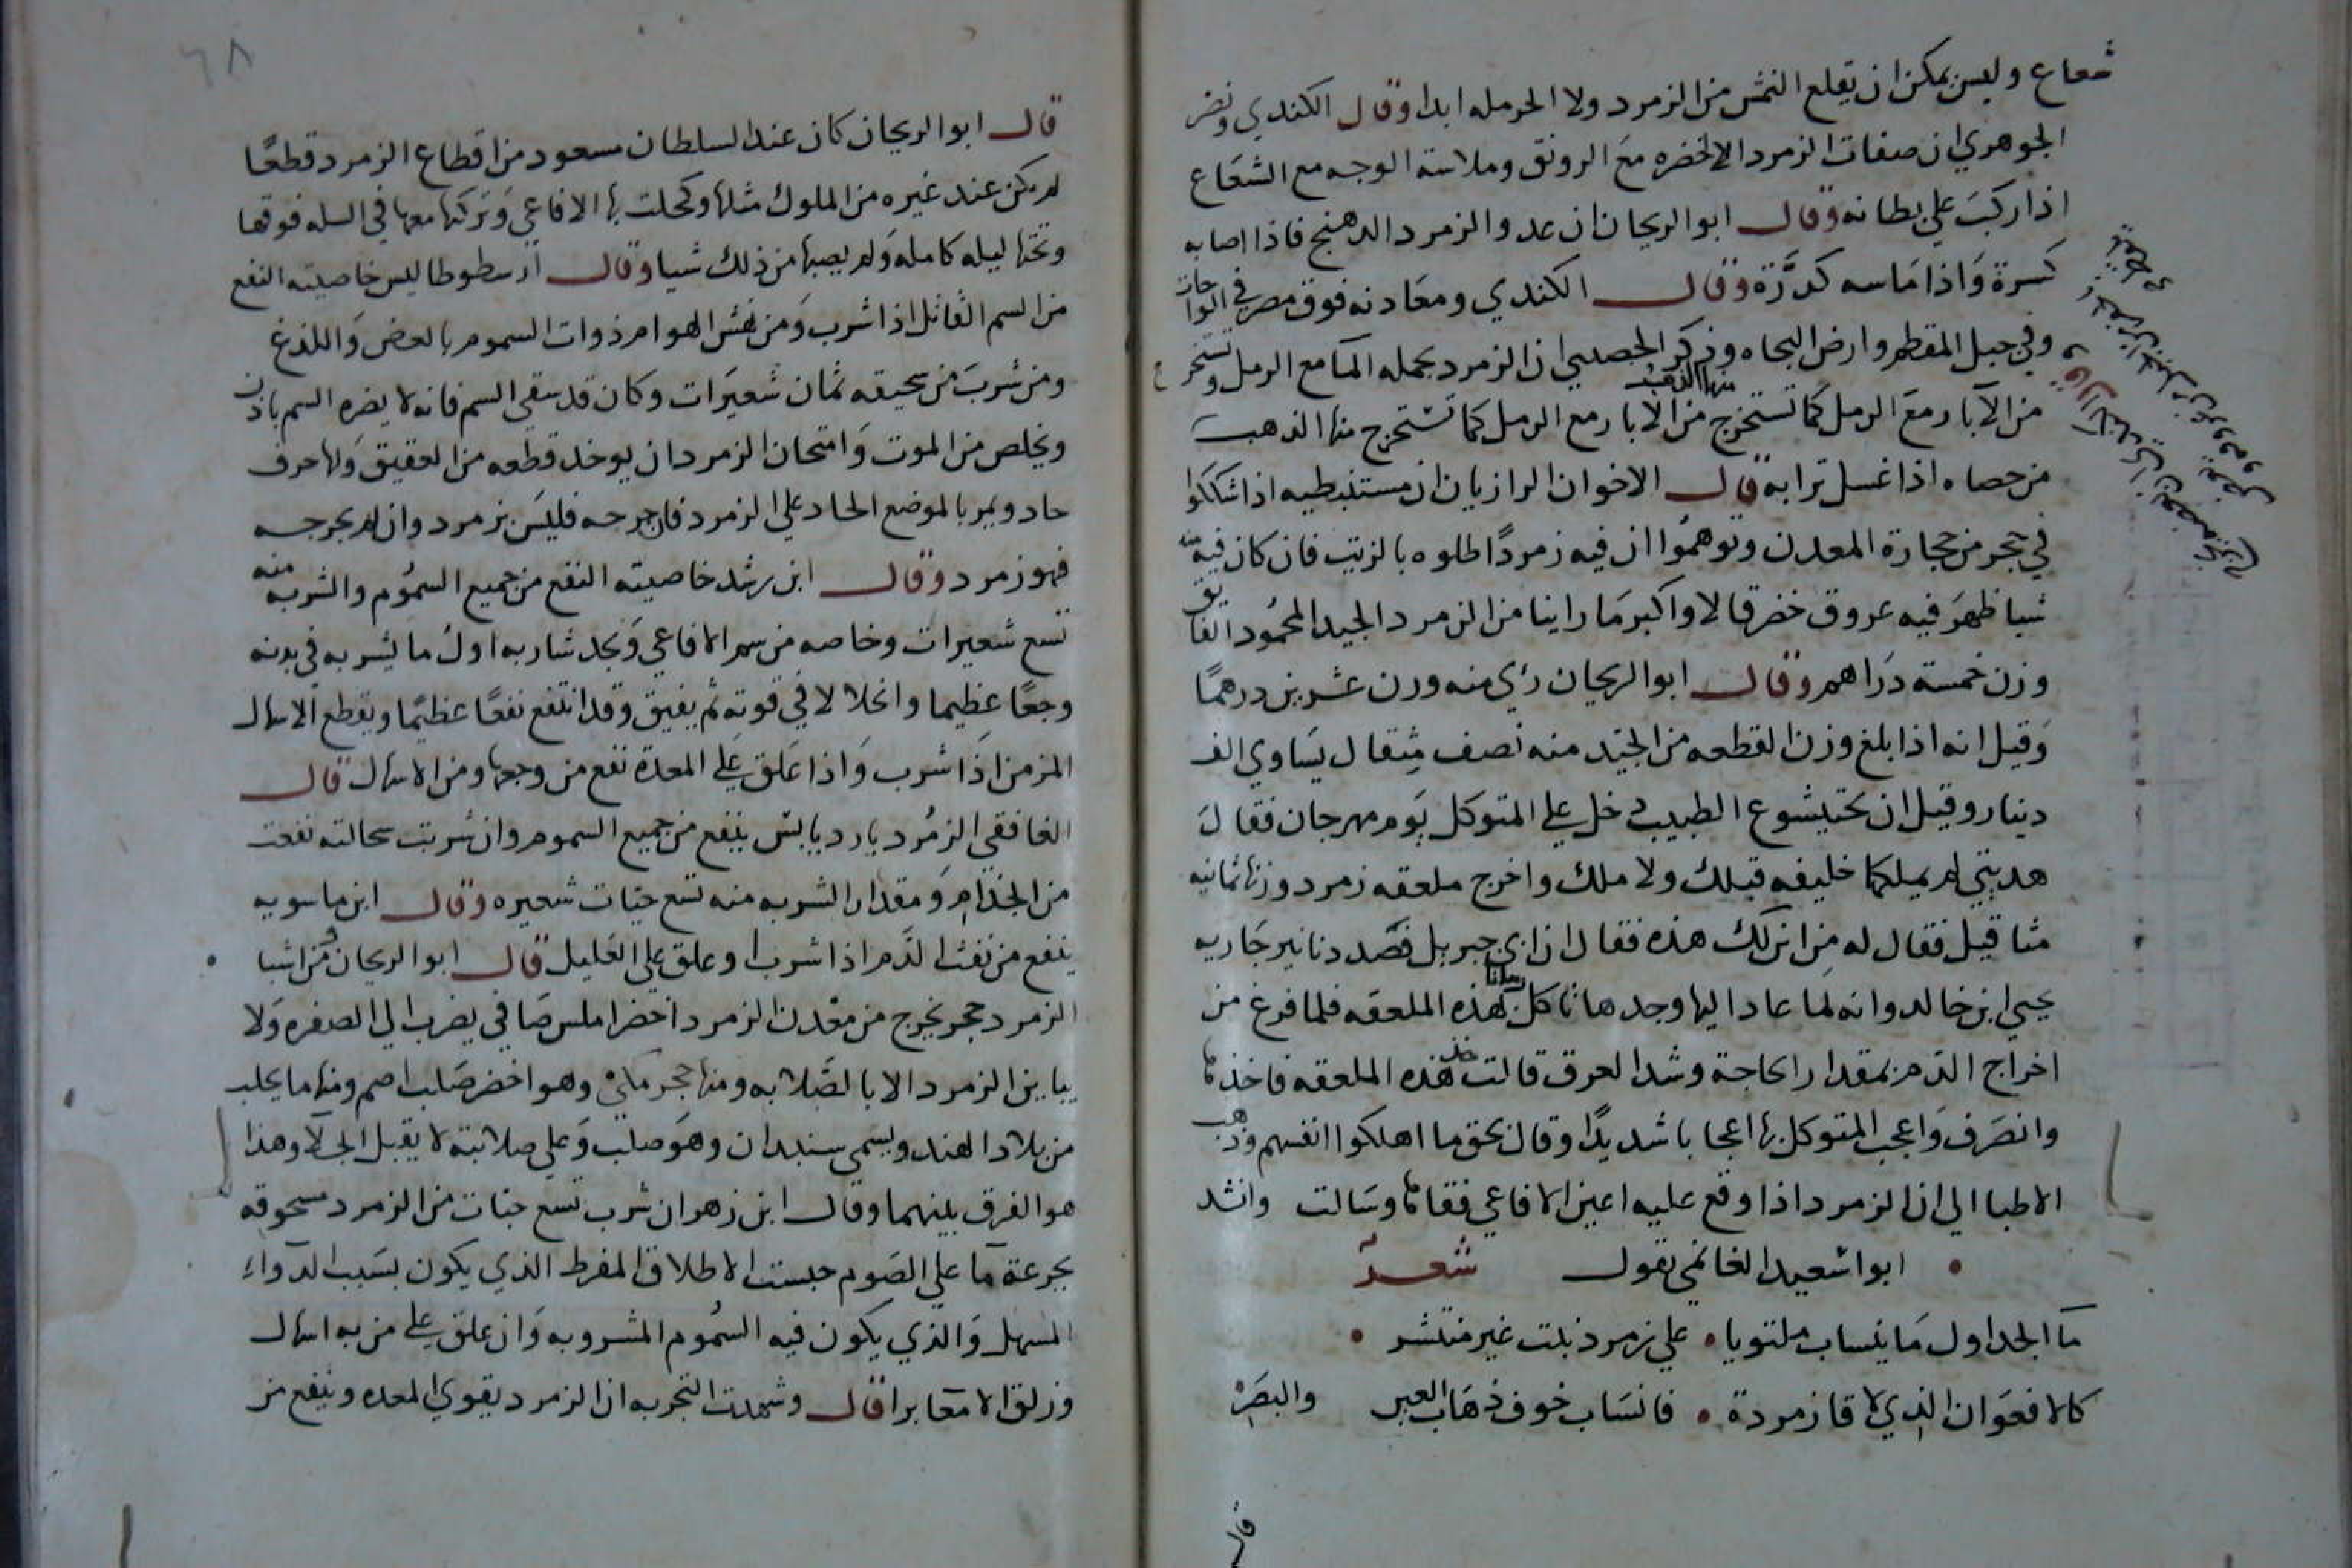 شعاع وليس يمكن ان يقلع النمش من الزمرد ولا الحرمله ابدا وقال الكندي ونصر
الجوهري ان صفات الزمرد الالخضره مع الرونق وملاسة الوجه مع الشعاع
اذا ركب علي بطانه وقال ابو الريحان ان عدو الزمرد الدهنج فاذا اصابه
كسرة واذا ماسه كدّرة وقال الكندي ومعادنه فوق مصر في الواحات
وفي جبل المقطم وارض البجاه وذكر الحصيبي ان الزمرد بجمله الما مع الرمل وتستخرج
من الآبار مع الرمل كما تستخرج منها الذهب من الابار مع الرمل كما تستخرج منها الذهب
من حصاه اذا غسل ترابه قال الاخوان الرازيان ان مستنبطيه اذا شككوا
في حجر من حجارة المعدن وتوهموا ان فيه زمردًا طلوه بالزيت فان كان فيه منه
شيا ظهر فيه عروق خضر قالا واكبر ما راينا من الزمرد الجيد المحمود الفايق
وزن خمسة دراهم وقال ابو الريحان رئي منه وزن عشرين درهمًا
وقيل انه اذا بلغ وزن القطعه من الجيد منه نصف مثقال يساوي الف
دينار وقيل ان بختيشوع الطبيب دخل علي المتوكل يوم مهرجان فقال
هديتي لم يملكها خليفه قبلك ولا ملك واخرج ملعقه زمرد وزنها ثمانيه
مثاقيل فقال له من اين لك هذه فقال ان ابي جبريل فصد دنانير جاريه
يحيي ابن خالد وانه لما عاد اليها وجدها تاكل رمانا بهذه الملعقه فلما فرغ من
اخراج الدم بمقدار الحاجة وشد العرق قالت خذ هذه الملعقه فاخذها
وانصرف واعجب المتوكل بها اعجابا شديدًا وقال بحق ما اهلكوا انفسهم وذهب
الاطبا الي ان الزمرد اذا وقع عليه اعين الافاعي فقاها وسالت وانشد
ابوا سعيد الغانمي يقول شعر
ما الجداول ما ينساب ملتويا علي زمرد نبت غير منتشر
كالافعوان الذي لاقا زمردة فانساب خوف ذهاب العين والبصر
قال
٦٨
قال ابو الريحان كان عند السلطان مسعود من اقطاع الزمرد قطعًا
لم يكن عند غيره من الملوك مثلها وكحلت بها الافاعي وتركها معها في السله فوقها
وتحتها ليله كامله ولم يصبها من ذلك شيا وقال ارسطوطاليس خاصيته النفع
من السم القاتل اذا شرب ومن نهش الهوام ذوات السموم بالعض واللذغ
ومن شرب من سحيقه ثمان شعيرات وكان قد سقي السم فانه لا يضره السم باذن
ويخلص من الموت وامتحان الزمرد ان يوخد قطعه من العقيق ولها حرف
حاد ويمر بالموضع الحاد علي الزمرد فان جرحه فليس بزمرد وان لم يجرحه
فهو زمرد وقال ابن رشد خاصيته النفع من جميع السموم والشربه منه
تسع شعيرات وخاصه من سم الافاعي ويجد شاربه اول ما يشربه في بدنه
وجعًا عظيما وانحلالا في قوته ثم يفيق وقد انتفع نفعًا عظيمًا ويقطع الاسهال
المزمن اذا شرب واذا علق علي المعدة نفع من وجعها ومن الاسهال قال
الغافقي الزمرد بارد يابس ينفع من جميع السموم وان شربت سحالته نفعت
من الجذام ومقدار الشربه منه تسع حبات شعيره وقال ابن ماسويه
ينفع من نفث الدم اذا شرب او علق علي العليل قال ابو الريحان ومن اشبا
الزمرد حجر يخرج من معدن الزمرد اخضر املس صافي يضرب الي الصفره ولا
يباين الزمرد الا بالصلابه ومنها حجر مكي وهو اخضر صلب اصم ومنها ما يجلب
من بلاد الهند ويسمي سنبدان وهو صلب وعلي صلابته لا يقبل الجلا وهذا
هو الفرق بينهما وقال ابن زهر ان شرب تسع حبات من الزمرد مسحوقه
بجرعة ما علي الصوم حبست الاطلاق المفرط الذي يكون بسبب الدواء
المسهل والذي يكون فيه السموم المشروبه وان علق علي من به اسهال
وزلق الامعا برا قال وشهدت التجربه ان الزمرد يقوي المعده وينفع من